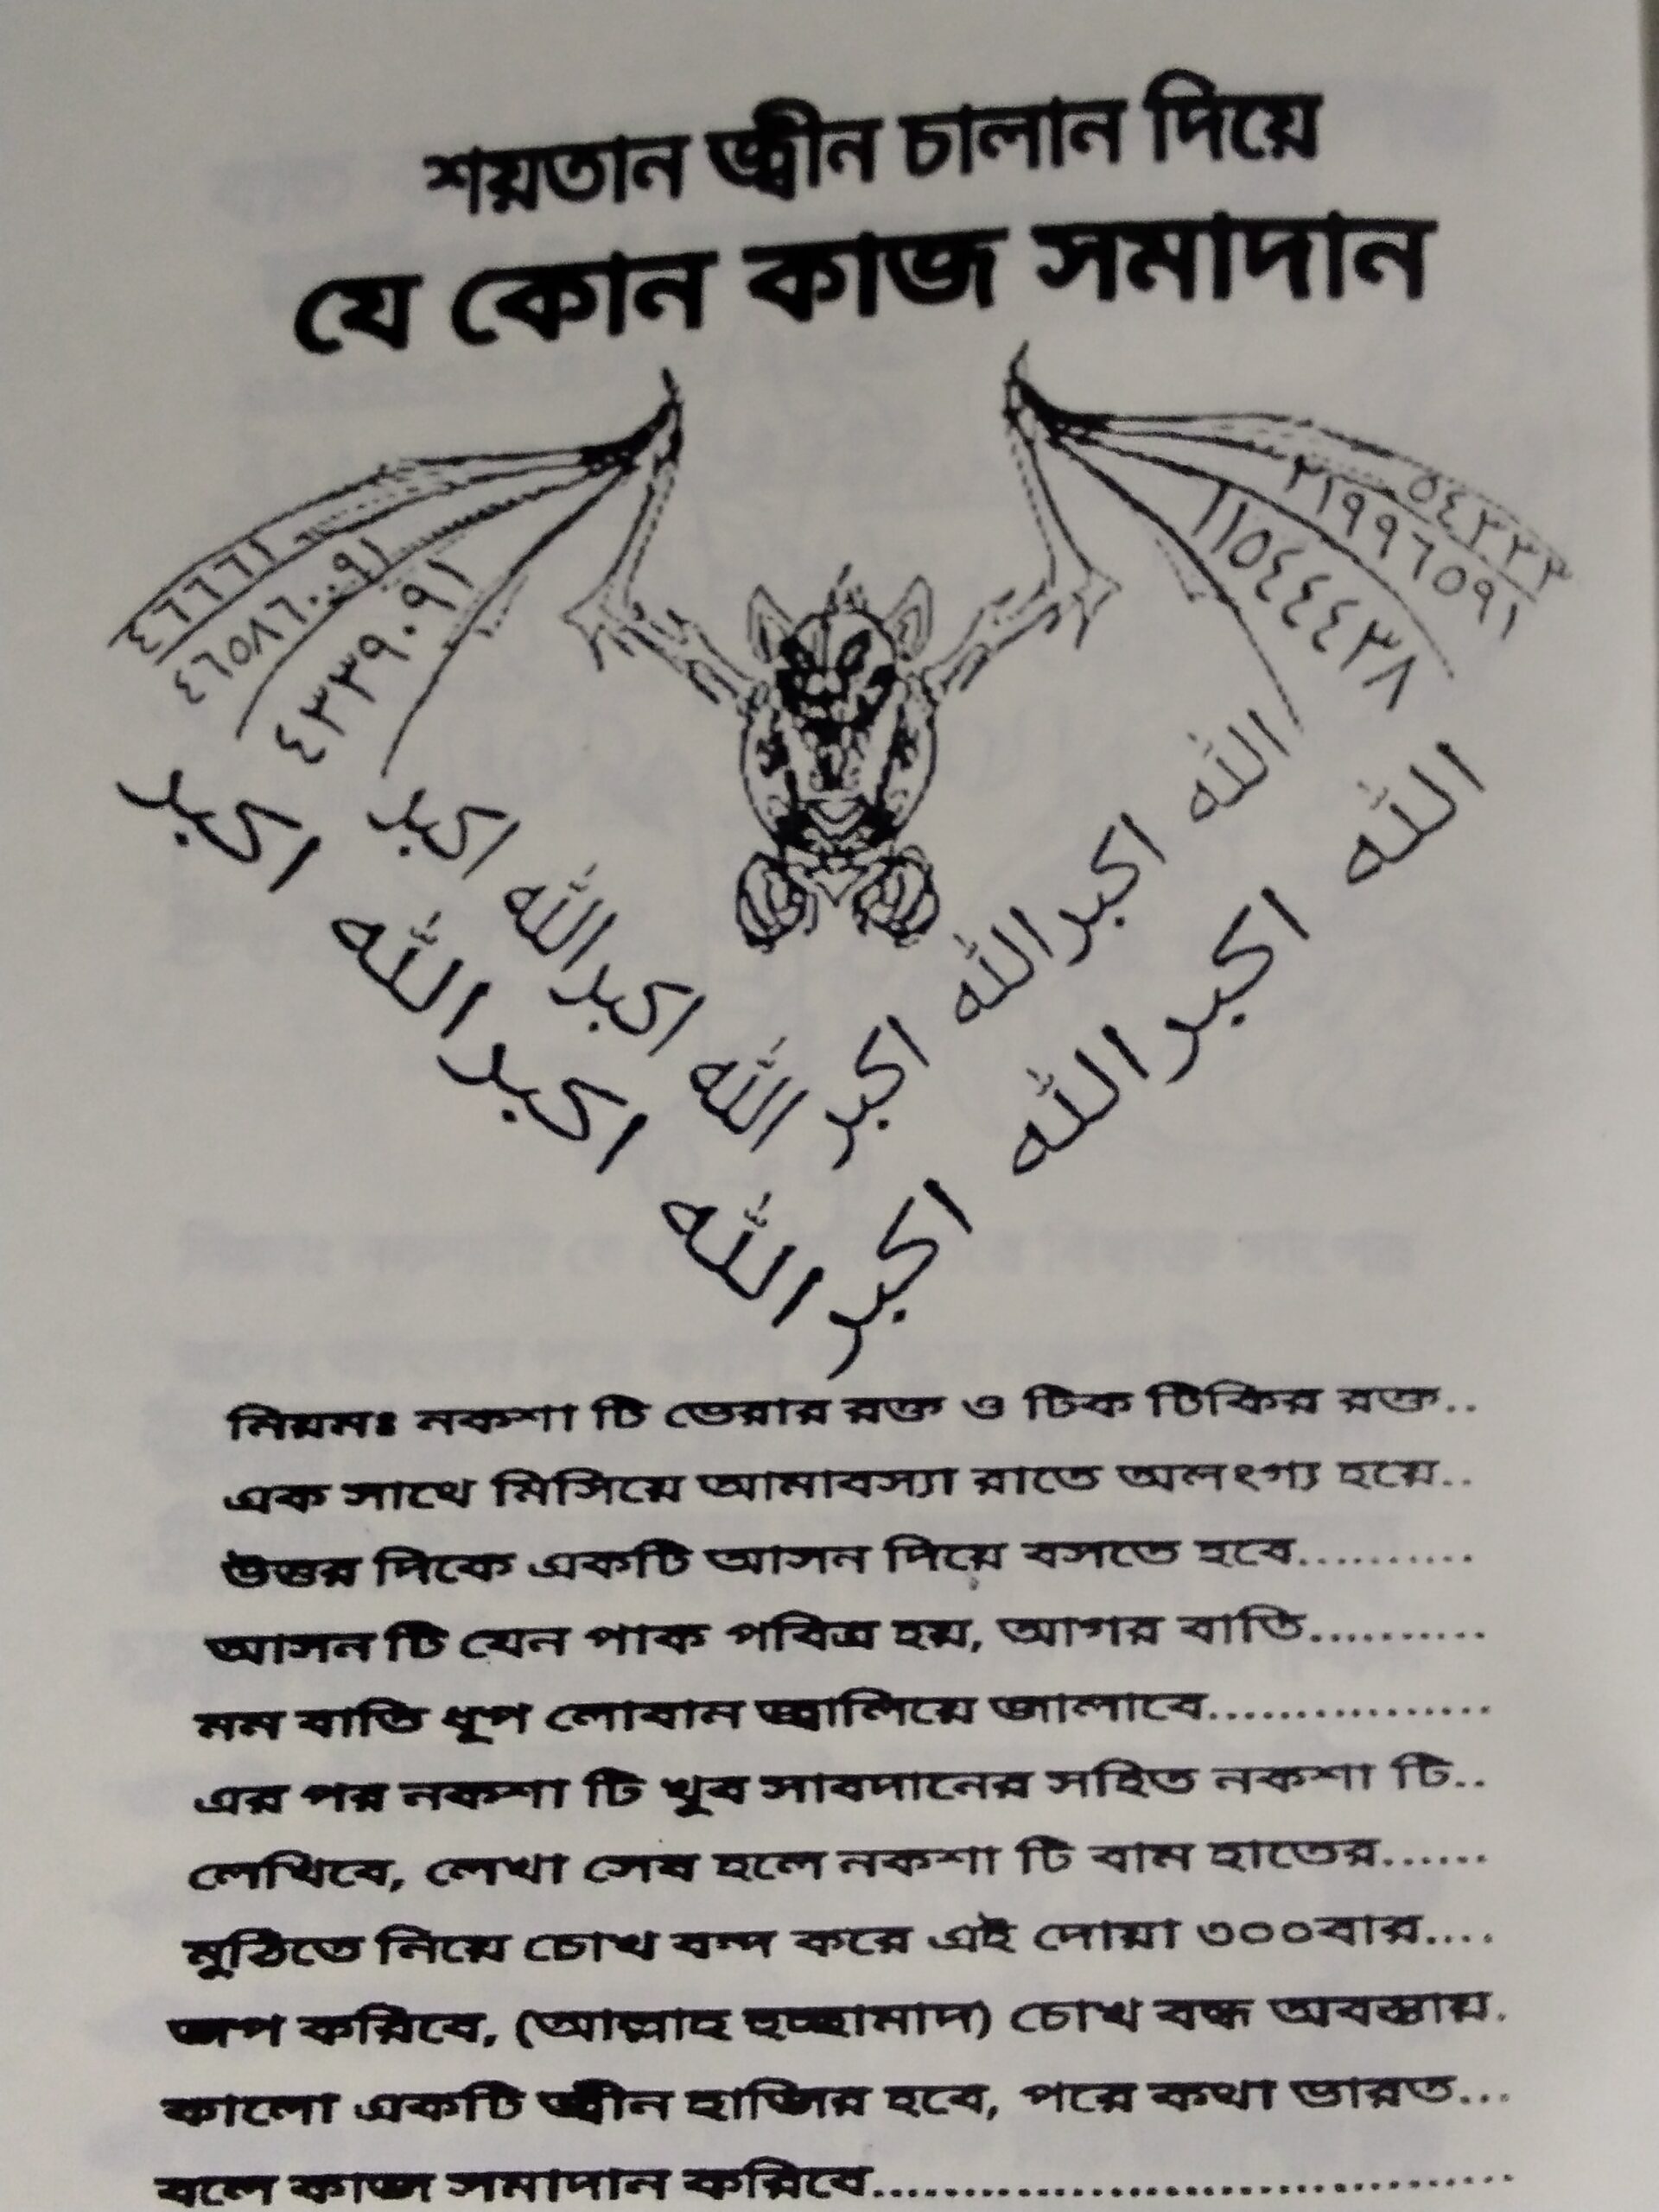 শয়তান জ্বীন চালান দিয়ে
যে কোন কাজ সমাদান
٤٦٦٦١
٤٦٥٨٦٠٠٩١
٤٣٣٩٠٩١
٥٤٣٣٣
٢١٩٩٦٥٩١
١١٥٤٤٤٣٨
الله اكبر الله اكبر
الله اكبر الله اكبر
الله اكبر الله اكبر
الله اكبر الله اكبر
নিয়মঃ নকশা টি ভেরার রক্ত ও টিক টিকির রক্ত..
এক সাথে মিসিয়ে আমাবস্যা রাতে অলংগ্য হয়ে..
উত্তর দিকে একটি আসন দিয়ে বসতে হবে..........
আসন টি যেন পাক পবিত্র হয়, আগর বাতি..........
মম বাতি ধূপ লোবান জ্বালিয়ে জালাবে................
এর পর নকশা টি খুব সাবদানের সহিত নকশা টি..
লেখিবে, লেখা সেষ হলে নকশা টি বাম হাতের......
মুঠিতে নিয়ে চোখ বন্দ করে এই দোয়া ৩০০বার....
জপ করিবে, (আল্লাহ হুচ্ছামাদ) চোখ বদ্ধ অবস্তায়.
কালো একটি জ্বীন হাজির হবে, পরে কথা ভারত...
বলে কাজ সমাদান করিবে...................................